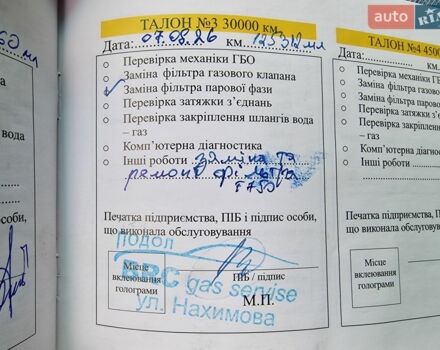 ТАЛОН №3 30000 км
Дата: 07.08.26 км 125312 мл
Перевірка механіки ГБО
Заміна фільтра газового клапана
Заміна фільтра парової фази
Перевірка затяжки з'єднань
Перевірка закріплення шлангів вода
– газ
Комп'ютерна діагностика
Інші роботи заміна та
ремонт фільтра
Печатка підприємства, ПІБ і підпис особи,
що виконала обслуговування
подол
Місце
вклеювання
голограми
BRC gas servise
ПІБ / підпис
М.П.
ул. Нахимова
вода
особи,
auto
RIA
ТАЛОН №4 450
Дата:
Перевірка механіки ГБ
Заміна фільтра газово
Заміна фільтра парово
Перевірка затяжки з'є
Перевірка закріплення
– газ
Комп'ютерна діагност
Інші роботи
Печатка підприємства, ПІБ
що виконала обслуговуван
Місце
вклеювання
голограми